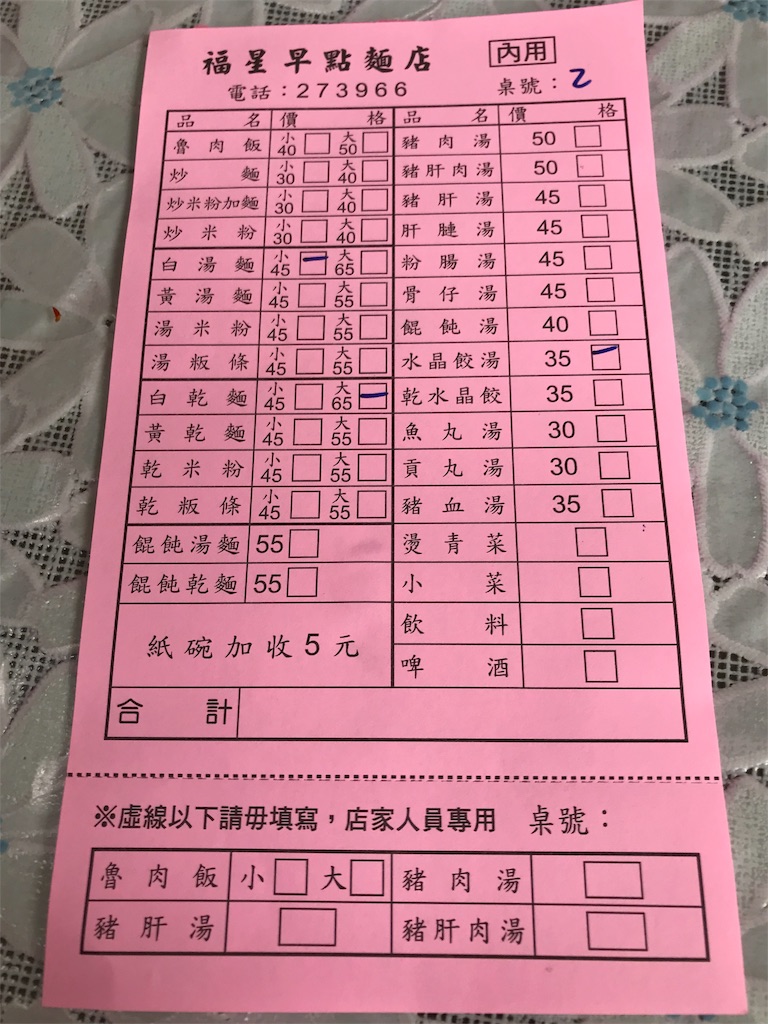 福星早點麵店 內用
電話：273966 桌號：2
品名 價格 品名 價格
魯肉飯 小40 大50 豬肉湯 50
炒麵 小30 大40 豬肝肉湯 50
炒米粉加麵 小30 大40 豬肝湯 45
炒米粉 小30 大40 肝腱湯 45
白湯麵 小45 大65 粉腸湯 45
黃湯麵 小45 大55 骨仔湯 45
湯米粉 小45 大55 餛飩湯 40
湯粄條 小45 大55 水晶餃湯 35
白乾麵 小45 大65 乾水晶餃 35
黃乾麵 小45 大55 魚丸湯 30
乾米粉 小45 大55 貢丸湯 30
乾粄條 小45 大55 豬血湯 35
餛飩湯麵 55 燙青菜
餛飩乾麵 55 小菜
紙碗加收5元 飲料
啤酒
合計
※虛線以下請毋填寫，店家人員專用 桌號：
魯肉飯 小 大 豬肉湯
豬肝湯 豬肝肉湯